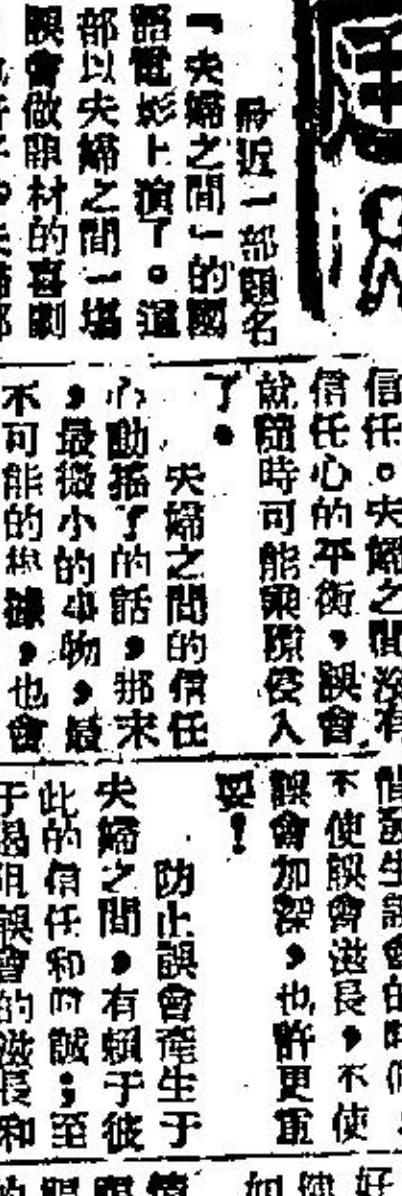 最近一部題名
『夫婦之間』的國
語電影上演了。這
部以夫婦之間一場
誤會做題材的喜劇
信任。夫婦之間沒有
信任心的平衡,誤會
就隨時可能乘隙侵入
了。
夫婦之間的信任
心動搖了的話,那末
,最微小的事物,最
不可能的根據,也會
不使誤會滋長,不使
誤會加深,也許更重
要!
防止誤會產生于
夫婦之間,有賴于彼
此的信任和坦誠;至
于遏阻誤會的滋長和